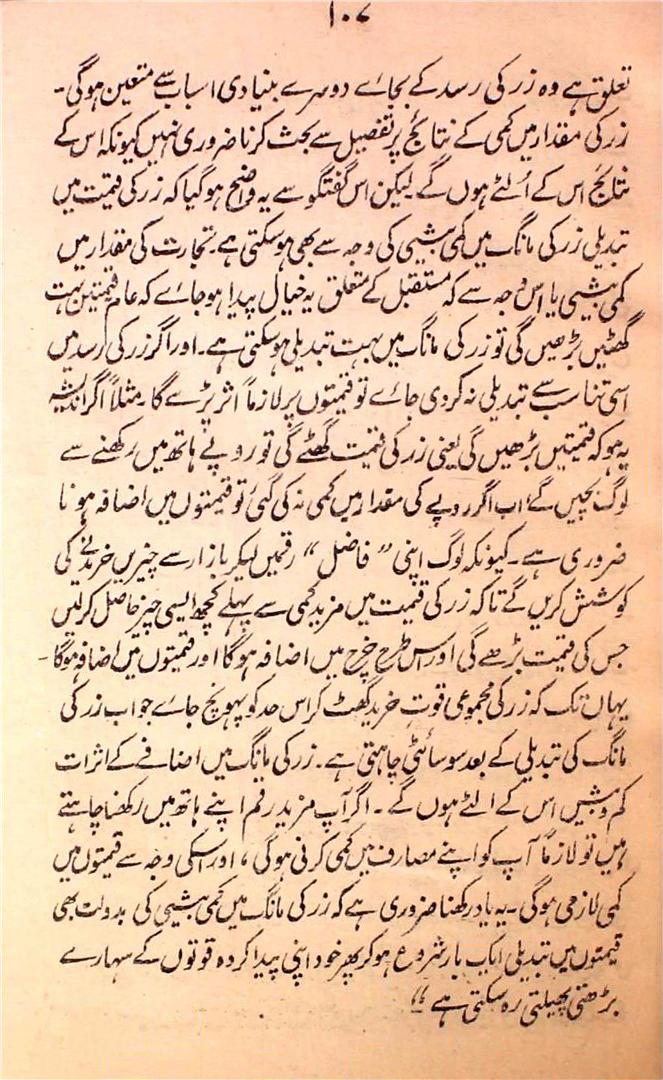 ۱۰۷
تعلق ہے وہ زر کی رسد کے بجاے دوسرے بنیادی اسباب سے متعین ہوگی۔
زر کی مقدار میں کمی کے نتائج پر تفصیل سے بحث کرنا ضروری نہیں کیونکہ اس کے
نتائج اس کے اُلٹے ہوں گے لیکن اس گفتگو سے یہ واضح ہوگیا کہ زر کی قیمت میں
تبدیلی زر کی مانگ میں کمی بیشی کی وجہ سے بھی ہوسکتی ہے۔ تجارت کی مقدار میں
کمی بیشی یا اس وجہ سے کہ مستقبل کے متعلق یہ خیال پیدا ہوجاے کہ عام قیمتیں بہت
گھٹیں بڑھیں گی تو زر کی مانگ میں بہت تبدیلی ہوسکتی ہے۔ اور اگر زر کی رسد میں
اسی تناسب سے تبدیلی نہ کردی جاے تو قیمتوں پر لازماً اثر پڑے گا۔ مثلاً اگر اندیشہ
یہ ہو کہ قیمتیں بڑھیں گی یعنی زر کی قیمت گھٹے گی تو روپے ہاتھ میں رکھنے سے
لوگ بچیں گے، اب اگر روپے کی مقدار میں کمی نہ کی گئی تو قیمتوں میں اضافہ ہونا
ضروری ہے۔ کیونکہ لوگ اپنی ”فاضل“ رقمیں لیکر بازار سے چیزیں خریدنے کی
کوشش کریں گے تاکہ زر کی قیمت میں مزید کمی سے پہلے کچھ ایسی چیز حاصل کرلیں
جس کی قیمت بڑھے گی اور اس طرح خرچ میں اضافہ ہوگا اور قیمتوں میں اضافہ ہوگا۔
یہاں تک کہ زر کی مجموعی قوت خرید گھٹ کر اس حد کو پہونچ جاے جو اب زر کی
مانگ کی تبدیلی کے بعد سوسائٹی چاہتی ہے۔ زر کی مانگ میں اضافے کے اثرات
کم و بیش اس کے الٹے ہوں گے۔ اگر آپ مزید رقم اپنے ہاتھ میں رکھنا چاہتے
ہیں تو لازماً آپ کو اپنے مصارف میں کمی کرنی ہوگی، اور اسکی وجہ سے قیمتوں میں
کمی لازمی ہوگی۔ یہ یاد رکھنا ضروری ہے کہ زر کی مانگ میں کمی بیشی کی بدولت بھی
قیمتوں میں تبدیلی ایک بار شروع ہوکر پھر خود اپنی پیدا کردہ قوتوں کے سہارے
بڑھتی پھیلتی رہ سکتی ہے“